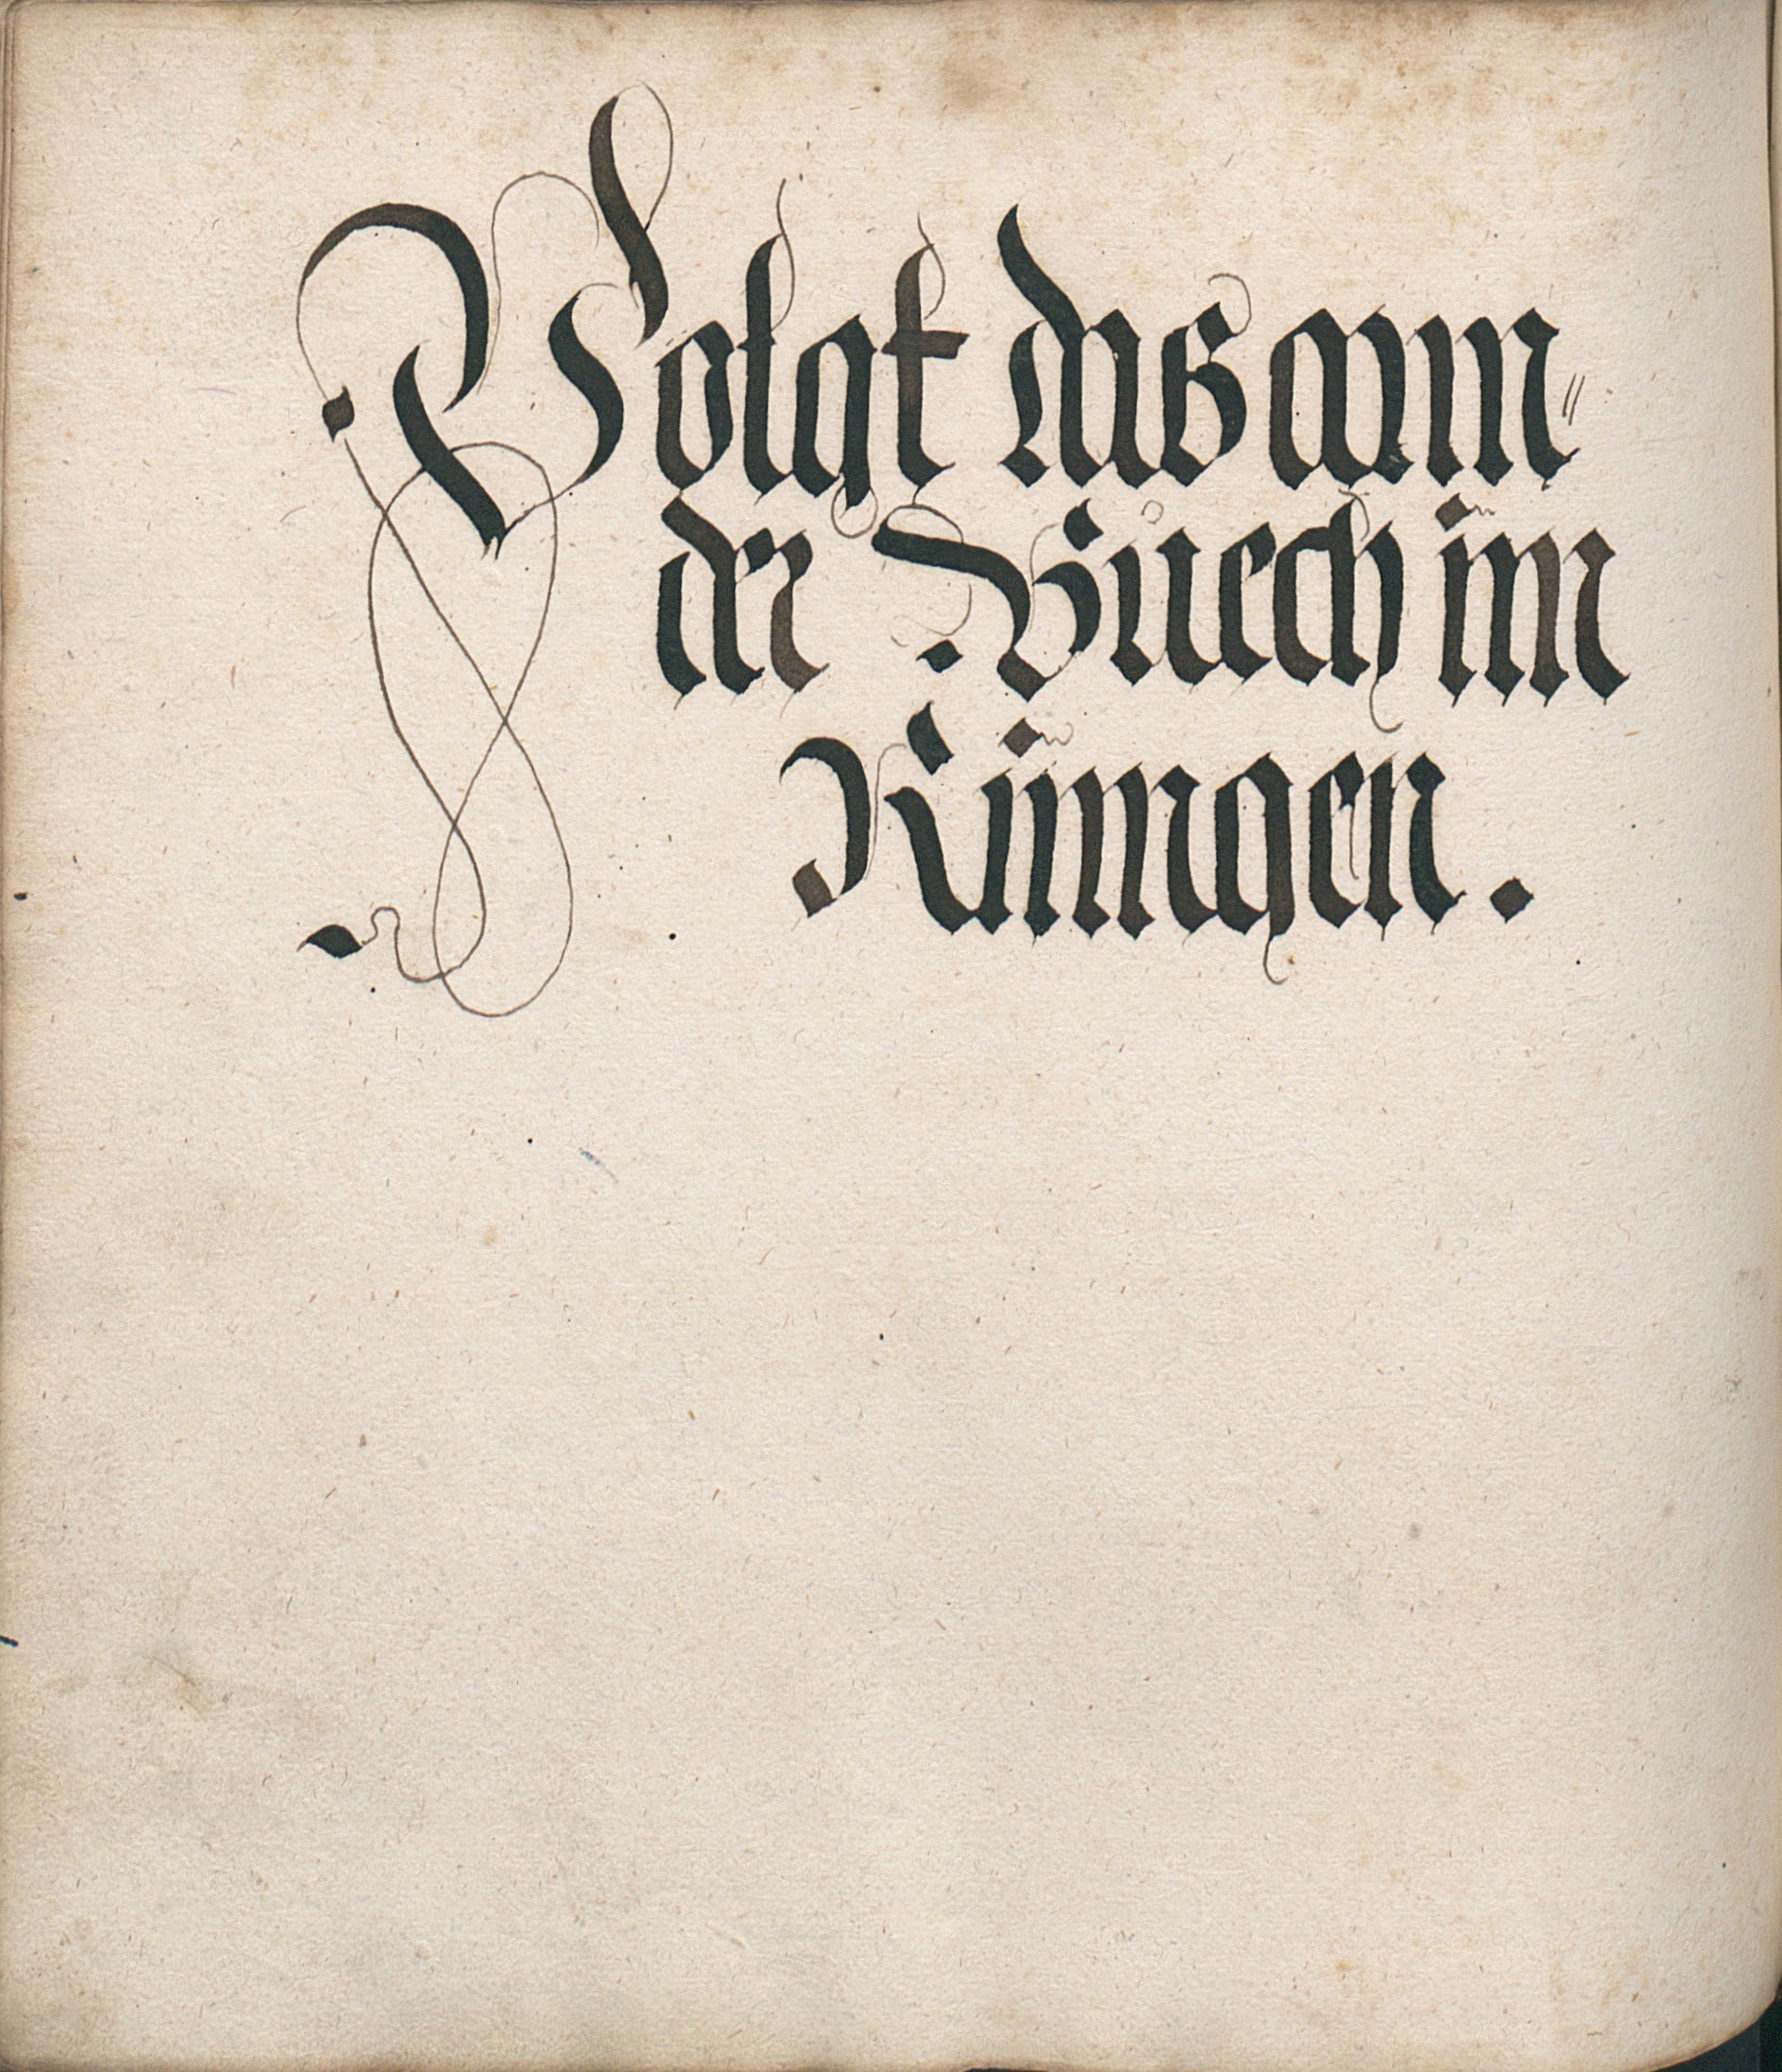 Volgt das ann-
der Buech im
Ringen.